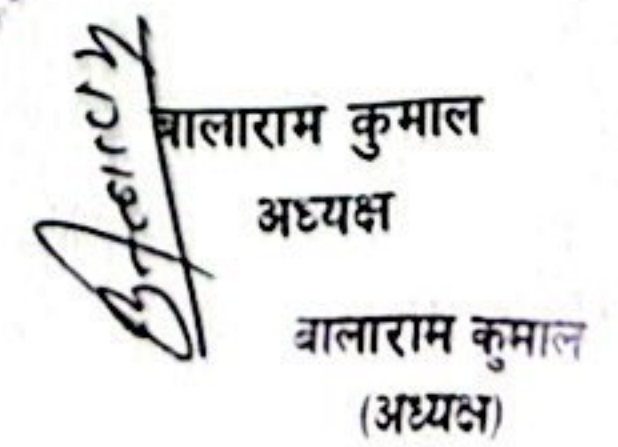 बालाराम कुमाल
अध्यक्ष
बालाराम कुमाल
(अध्यक्ष)